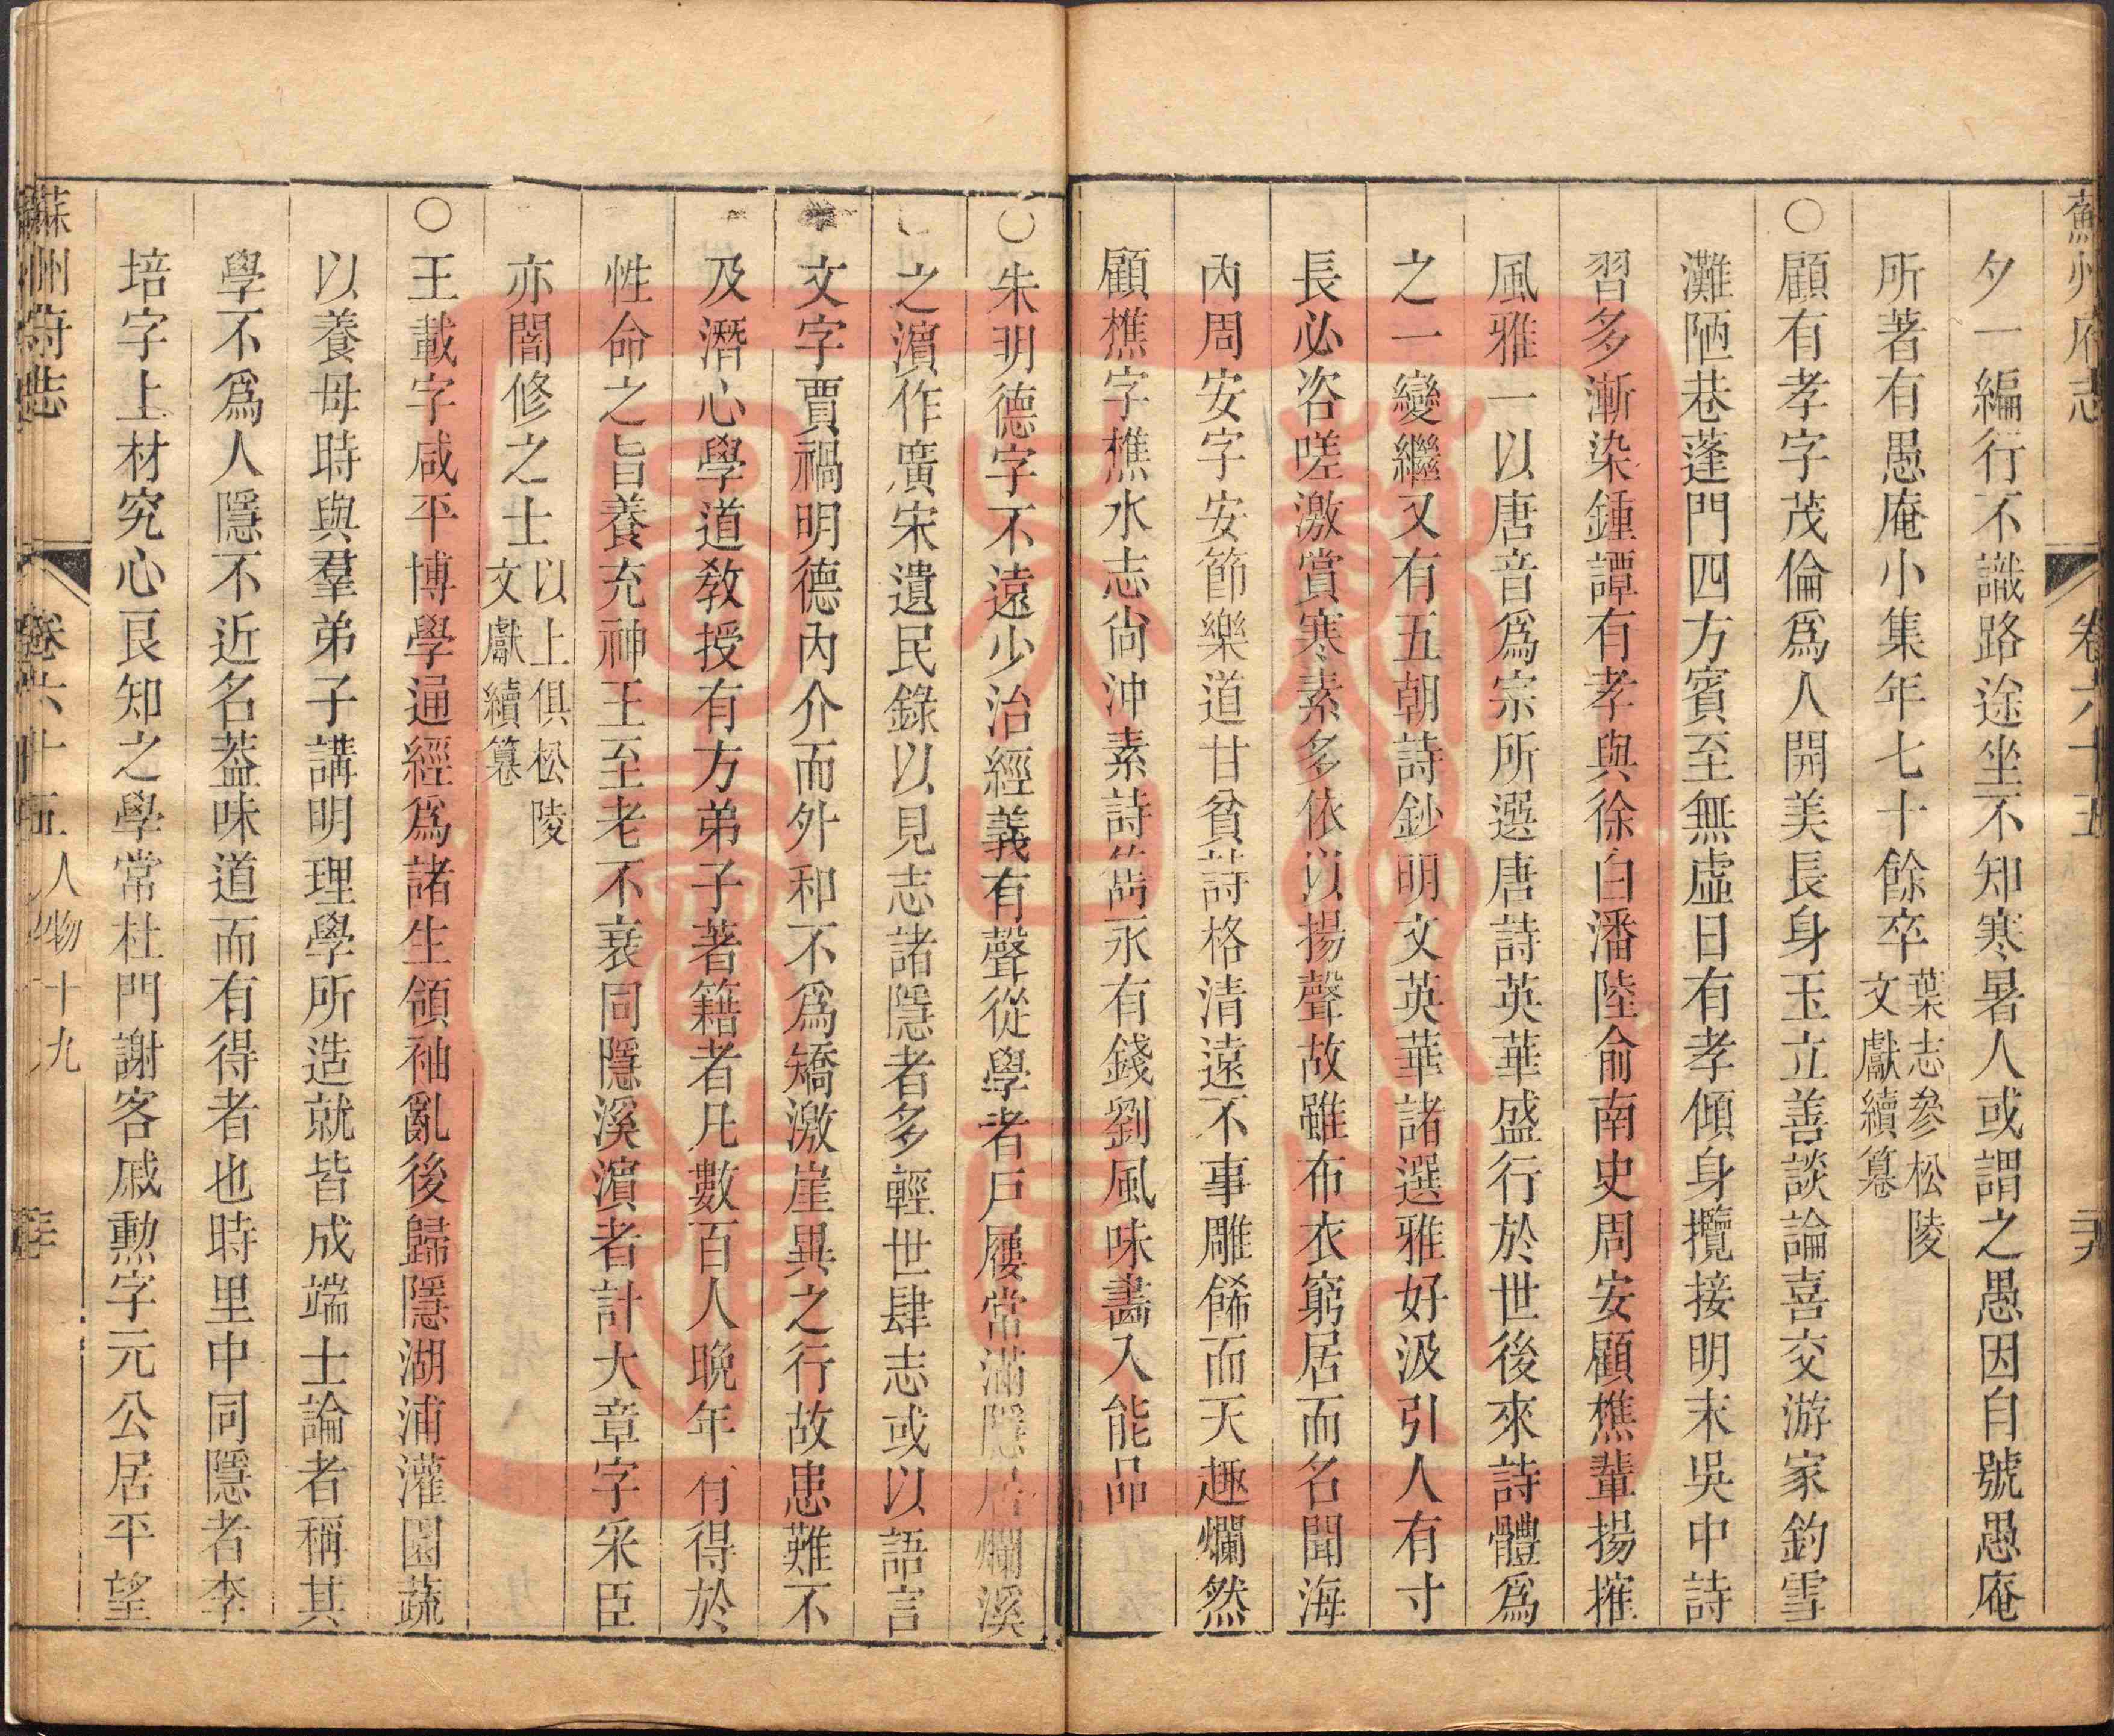 蘇州府志 卷六十五
夕一編行不識路途坐不知寒暑人或謂之愚因自號愚庵
所著有愚庵小集年七十餘卒葉志參松陵文獻續纂
〇顧有孝字茂倫爲人開美長身玉立善談論喜交游家釣雪
灘陋巷蓬門四方賓至無虛日有孝傾身攬接明末吳中詩
習多漸染鍾譚有孝與徐白潘陸俞南史周安顧樵輩揚搉
風雅一以唐音爲宗所選唐詩英華盛行於世後來詩體爲
之一變繼又有五朝詩鈔明文英華諸選雅好汲引人有寸
長必咨嗟激賞寒素多依以揚聲故雖布衣窮居而名聞海
內周安字安節樂道甘貧詩格清遠不事雕餙而天趣爛然
顧樵字樵水志尙沖素詩雋永有錢劉風味畵入能品
〇朱明德字不遠少治經義有聲從學者戶屨常滿隱居爛溪
之濵作廣宋遺民錄以見志諸隱者多輕世肆志或以語言
文字賈禍明德內介而外和不爲矯激崖異之行故患難不
及潛心學道敎授有方弟子著籍者凡數百人晚年有得於
性命之旨養充神王至老不衰同隱溪濵者計大章字采臣
亦闇修之士以上俱松陵文獻續纂
〇王載字咸平博學通經爲諸生領袖亂後歸隱湖浦灌園蔬
以養母時與羣弟子講明理學所造就皆成端士論者稱其
學不爲人隱不近名葢味道而有得者也時里中同隱者李
培字上材究心良知之學常杜門謝客戚勲字元公居平望
蘇州府志 卷六十五 人物十九